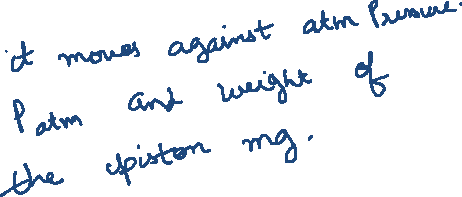 it moves against atm Pressure.
Patm and weight of
the piston mg.